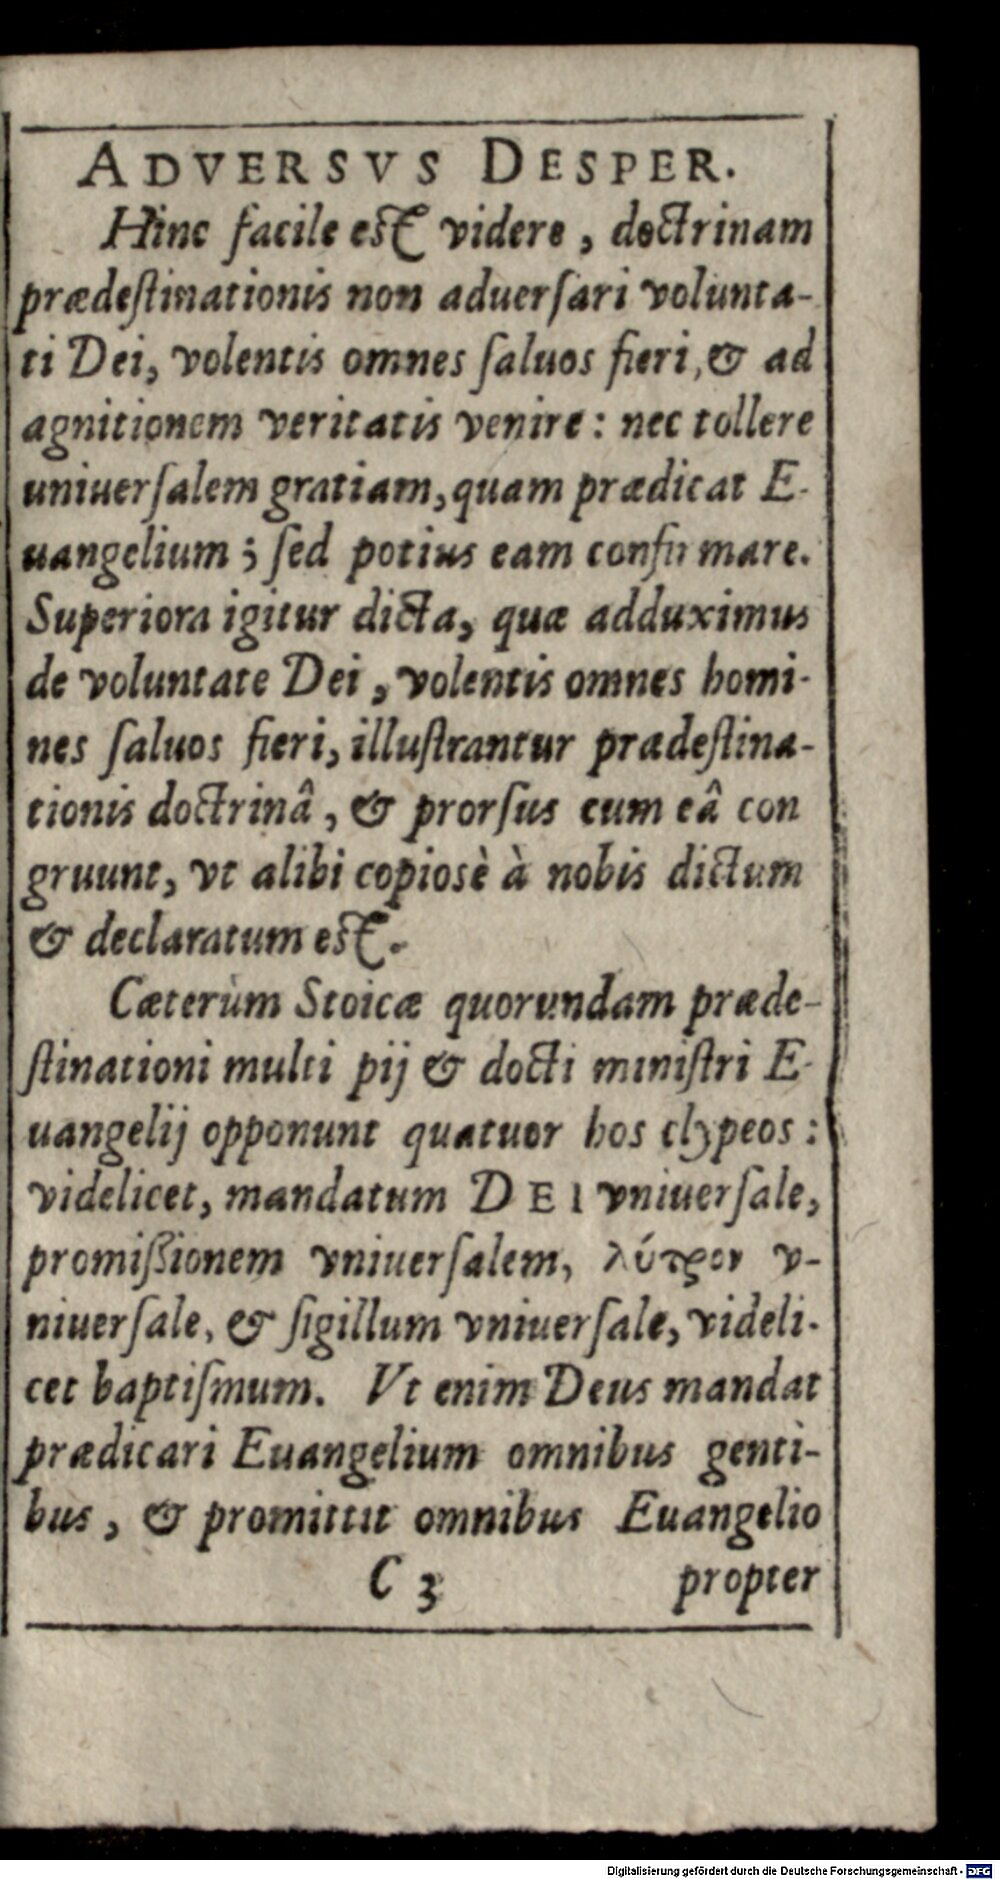 ADVERSVS DESPER.
Hinc facile est videre, doctrinam
prædeſtinationis non aduerſari volunta-
ti Dei, volentis omnes ſaluos fieri, & ad
agnitionem veritatis venire: nec tollere
uniuerſalem gratiam, quam prædicat E-
uangelium; ſed potius eam confirmare.
Superiora igitur dicta, quæ adduximus
de voluntate Dei, volentis omnes homi-
nes ſaluos fieri, illuſtrantur prædeſtina-
tionis doctrinâ, & prorſus cum eâ con
gruunt, vt alibi copiosè à nobis dictum
& declaratum est.
Cæterùm Stoicæ quorundam præde-
ſtinationi multi pij & docti miniſtri E-
uangelij opponunt quatuor hos clypeos:
videlicet, mandatum DEI vniuerſale,
promiſsionem vniuerſalem, λύτρον v-
niuerſale, & ſigillum vniuerſale, videli-
cet baptiſmum. Vt enim Deus mandat
prædicari Euangelium omnibus genti-
bus, & promittit omnibus Euangelio
C 3 propter
Digitalisierung gefördert durch die Deutsche Forschungsgemeinschaft - DFG